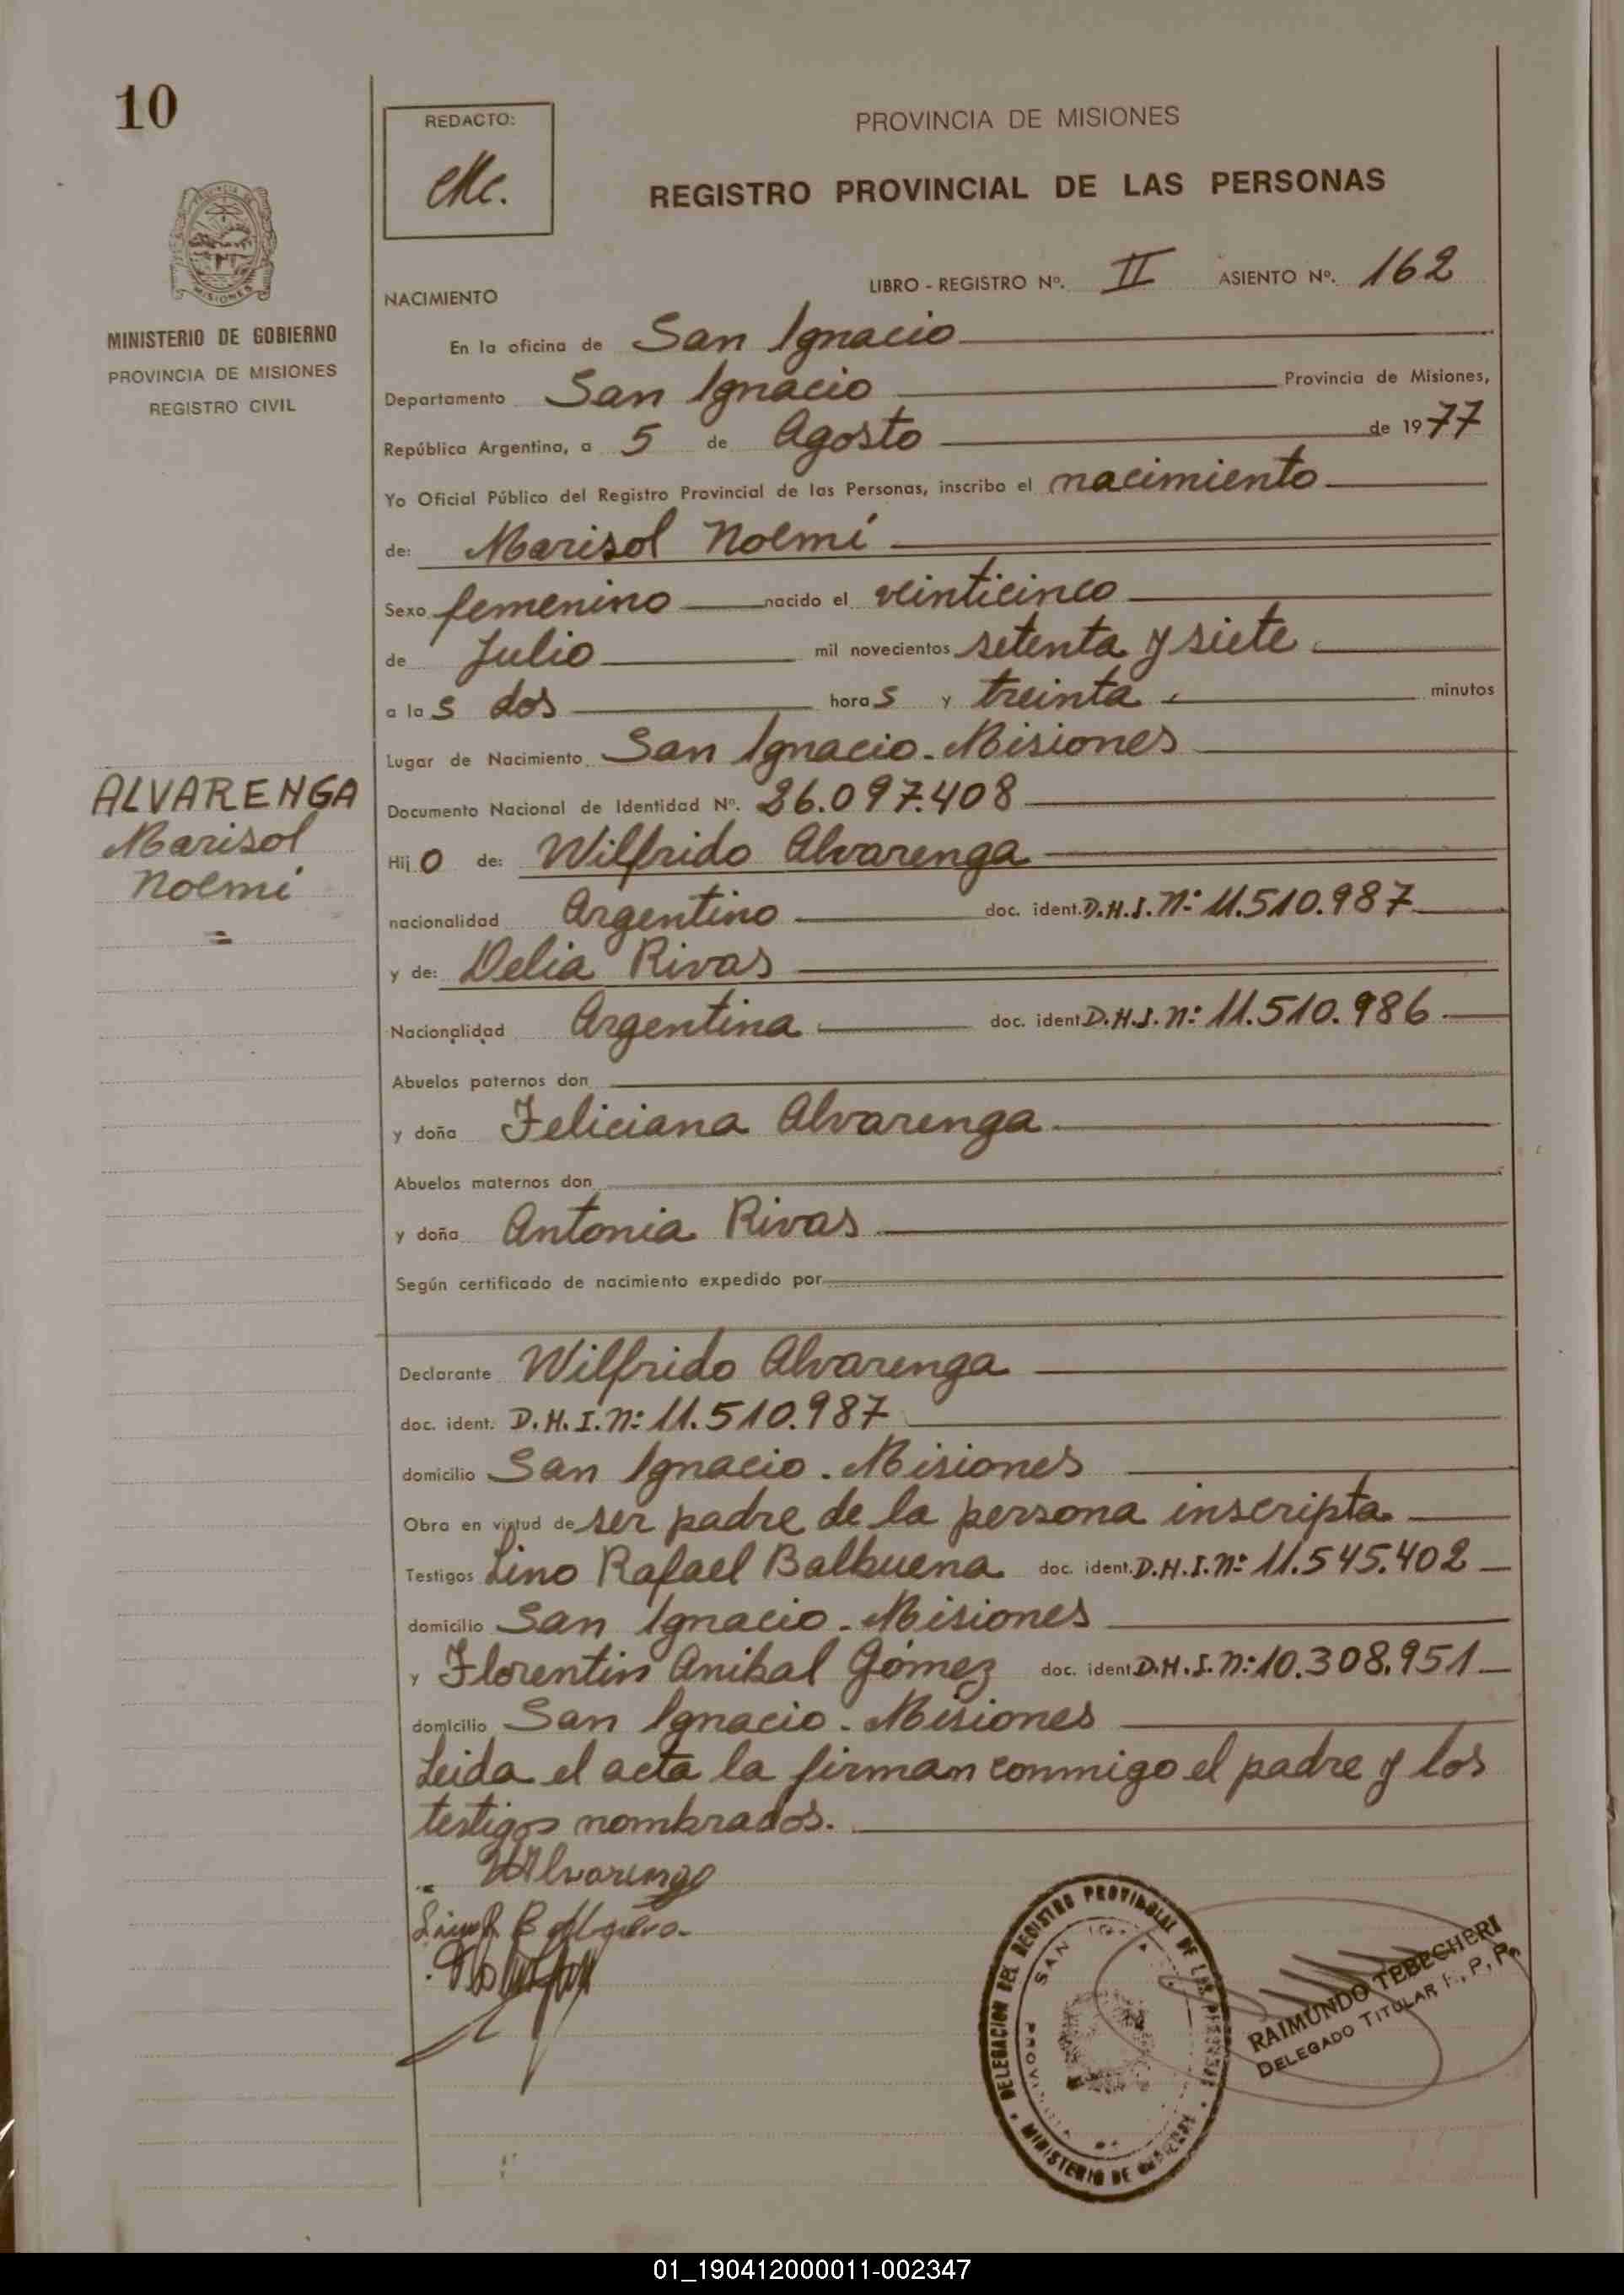 10
REDACTO:
PROVINCIA DE MISIONES
REGISTRO PROVINCIAL DE LAS PERSONAS
LIBRO - REGISTRO Nº. II ASIENTO Nº. 162
NACIMIENTO
MINISTERIO DE GOBIERNO
PROVINCIA DE MISIONES
REGISTRO CIVIL
En la oficina de San Ignacio
Departamento San Ignacio Provincia de Misiones,
República Argentina, a 5 de Agosto de 1977
Yo Oficial Público del Registro Provincial de las Personas, inscribo el nacimiento
de: Marisol Noemí
Sexo femenino nacido el veinticinco
de Julio mil novecientos setenta y siete
a las dos horas y treinta minutos
Lugar de Nacimiento San Ignacio - Misiones
ALVARENGA
Marisol
Noemí
Documento Nacional de Identidad Nº. 26.097.408
Hijo de: Wilfrido Alvarenga
nacionalidad Argentino doc. ident. D.N.I. Nº: 11.510.987
y de: Delia Rivas
Nacionalidad Argentina doc. ident D.N.I. Nº: 11.510.986
Abuelos paternos don
y doña Feliciana Alvarenga
Abuelos maternos don
y doña Antonia Rivas
Según certificado de nacimiento expedido por
Declarante Wilfrido Alvarenga
doc. ident. D.N.I. Nº: 11.510.987
domicilio San Ignacio - Misiones
Obra en virtud de ser padre de la persona inscripta
Testigos Lino Rafael Balbuena doc. ident. D.N.I. Nº: 11.545.402
domicilio San Ignacio - Misiones
y Florentin Anibal Gómez doc. ident D.N.I. Nº: 10.308.951
domicilio San Ignacio - Misiones
Leida el acta la firman conmigo el padre y los
testigos nombrados.
WAlvarenga
DELEGACION DEL REGISTRO PROVINCIAL DE LAS PERSONAS
MINISTERIO DE GOBIERNO
RAIMUNDO TEBECHERI
DELEGADO TITULAR R. P. P.
01_190412000011-002347